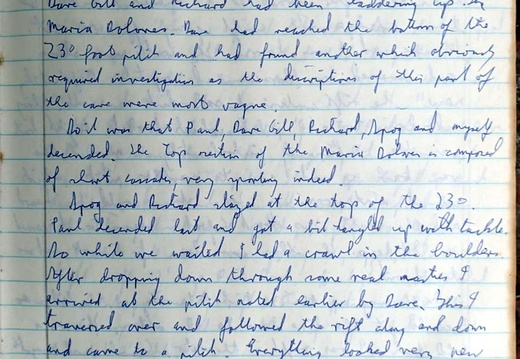 Dave Gill and Richard had been laddering up in
Maria Dolores. Dave had reached the bottom of the
230 foot pitch and had found another which obviously
required investigation as the descriptions of this part of
the cave were most vague.
So it was that Paul, Dave Gill, Richard, Spog and myself
descended. The top section of the Maria Dolores is composed
of short cascades, very sporting indeed.
Spog and Richard stayed at the top of the 230.
Paul descended last and got a bit tangled up with tackle.
So while we waited I had a crawl in the boulders.
After dropping down through some real nasties I
arrived at the pitch noted earlier by Dave. This I
traversed over and followed the rift along and down
and came to a pitch. Everything looked very new